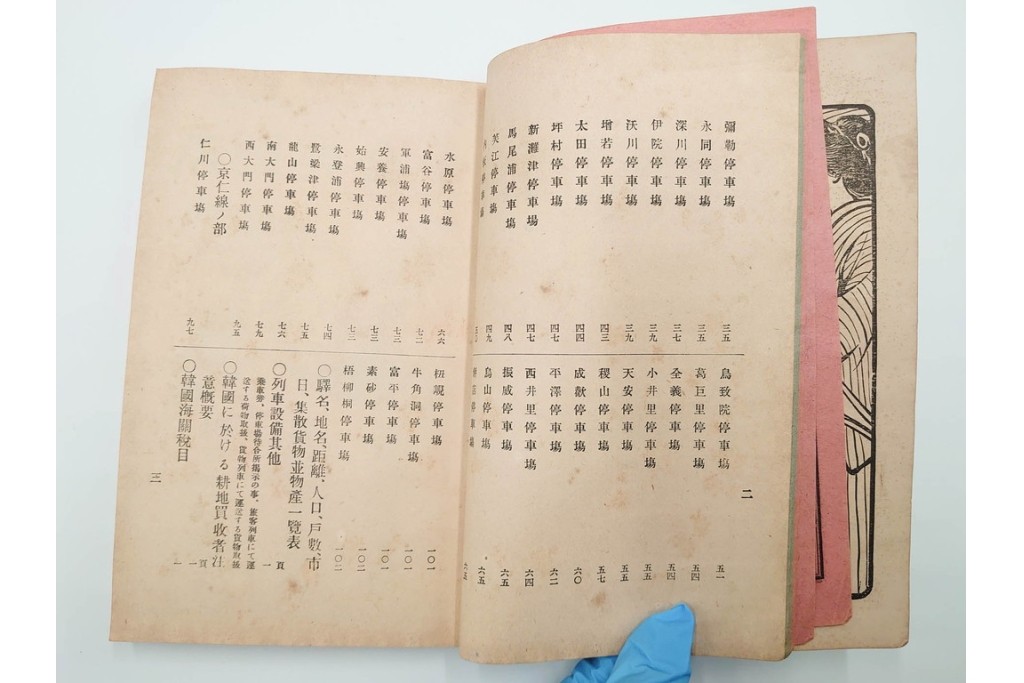 彌勒停車場 三五
永同停車場 三五
深川停車場 三七
伊院停車場 三九
沃川停車場 三九
增若停車場 四三
太田停車場 四七
坪村停車場 四七
新灘津停車場 四七
馬尾浦停車場 四八
芙江停車場 四九
停車場
鳥致院停車場 五一
葛巨里停車場 五四
全義停車場 五四
小井里停車場 五五
天安停車場 五五
稷山停車場 五七
成歡停車場 六〇
平澤停車場 六二
西井里停車場 六四
振威停車場 六五
烏山停車場 六五
停車場 六五
二
水原停車場 六六
富谷停車場 七二
軍浦場停車場 七三
安養停車場 七三
始興停車場 七三
永登浦停車場 七四
鷺梁津停車場 七五
龍山停車場 七六
南大門停車場 七九
西大門停車場 九五
〇京仁線ノ部
仁川停車場 九七
杻峴停車場 一〇一
牛角洞停車場 一〇一
富平停車場 一〇一
素砂停車場 一〇二
梧柳桐停車場 一〇二
〇驛名、地名、距離、人口、戶數、市
日、集散貨物並物產一覽表
〇列車設備其他 一頁
乘車劵、停車場待合所揭示の事、旅客列車にて運
送する荷物取扱、貨物列車にて運送する貨物取扱
〇韓國に於ける耕地買收者注
意槪要 一頁
〇韓國海關稅目 一
三